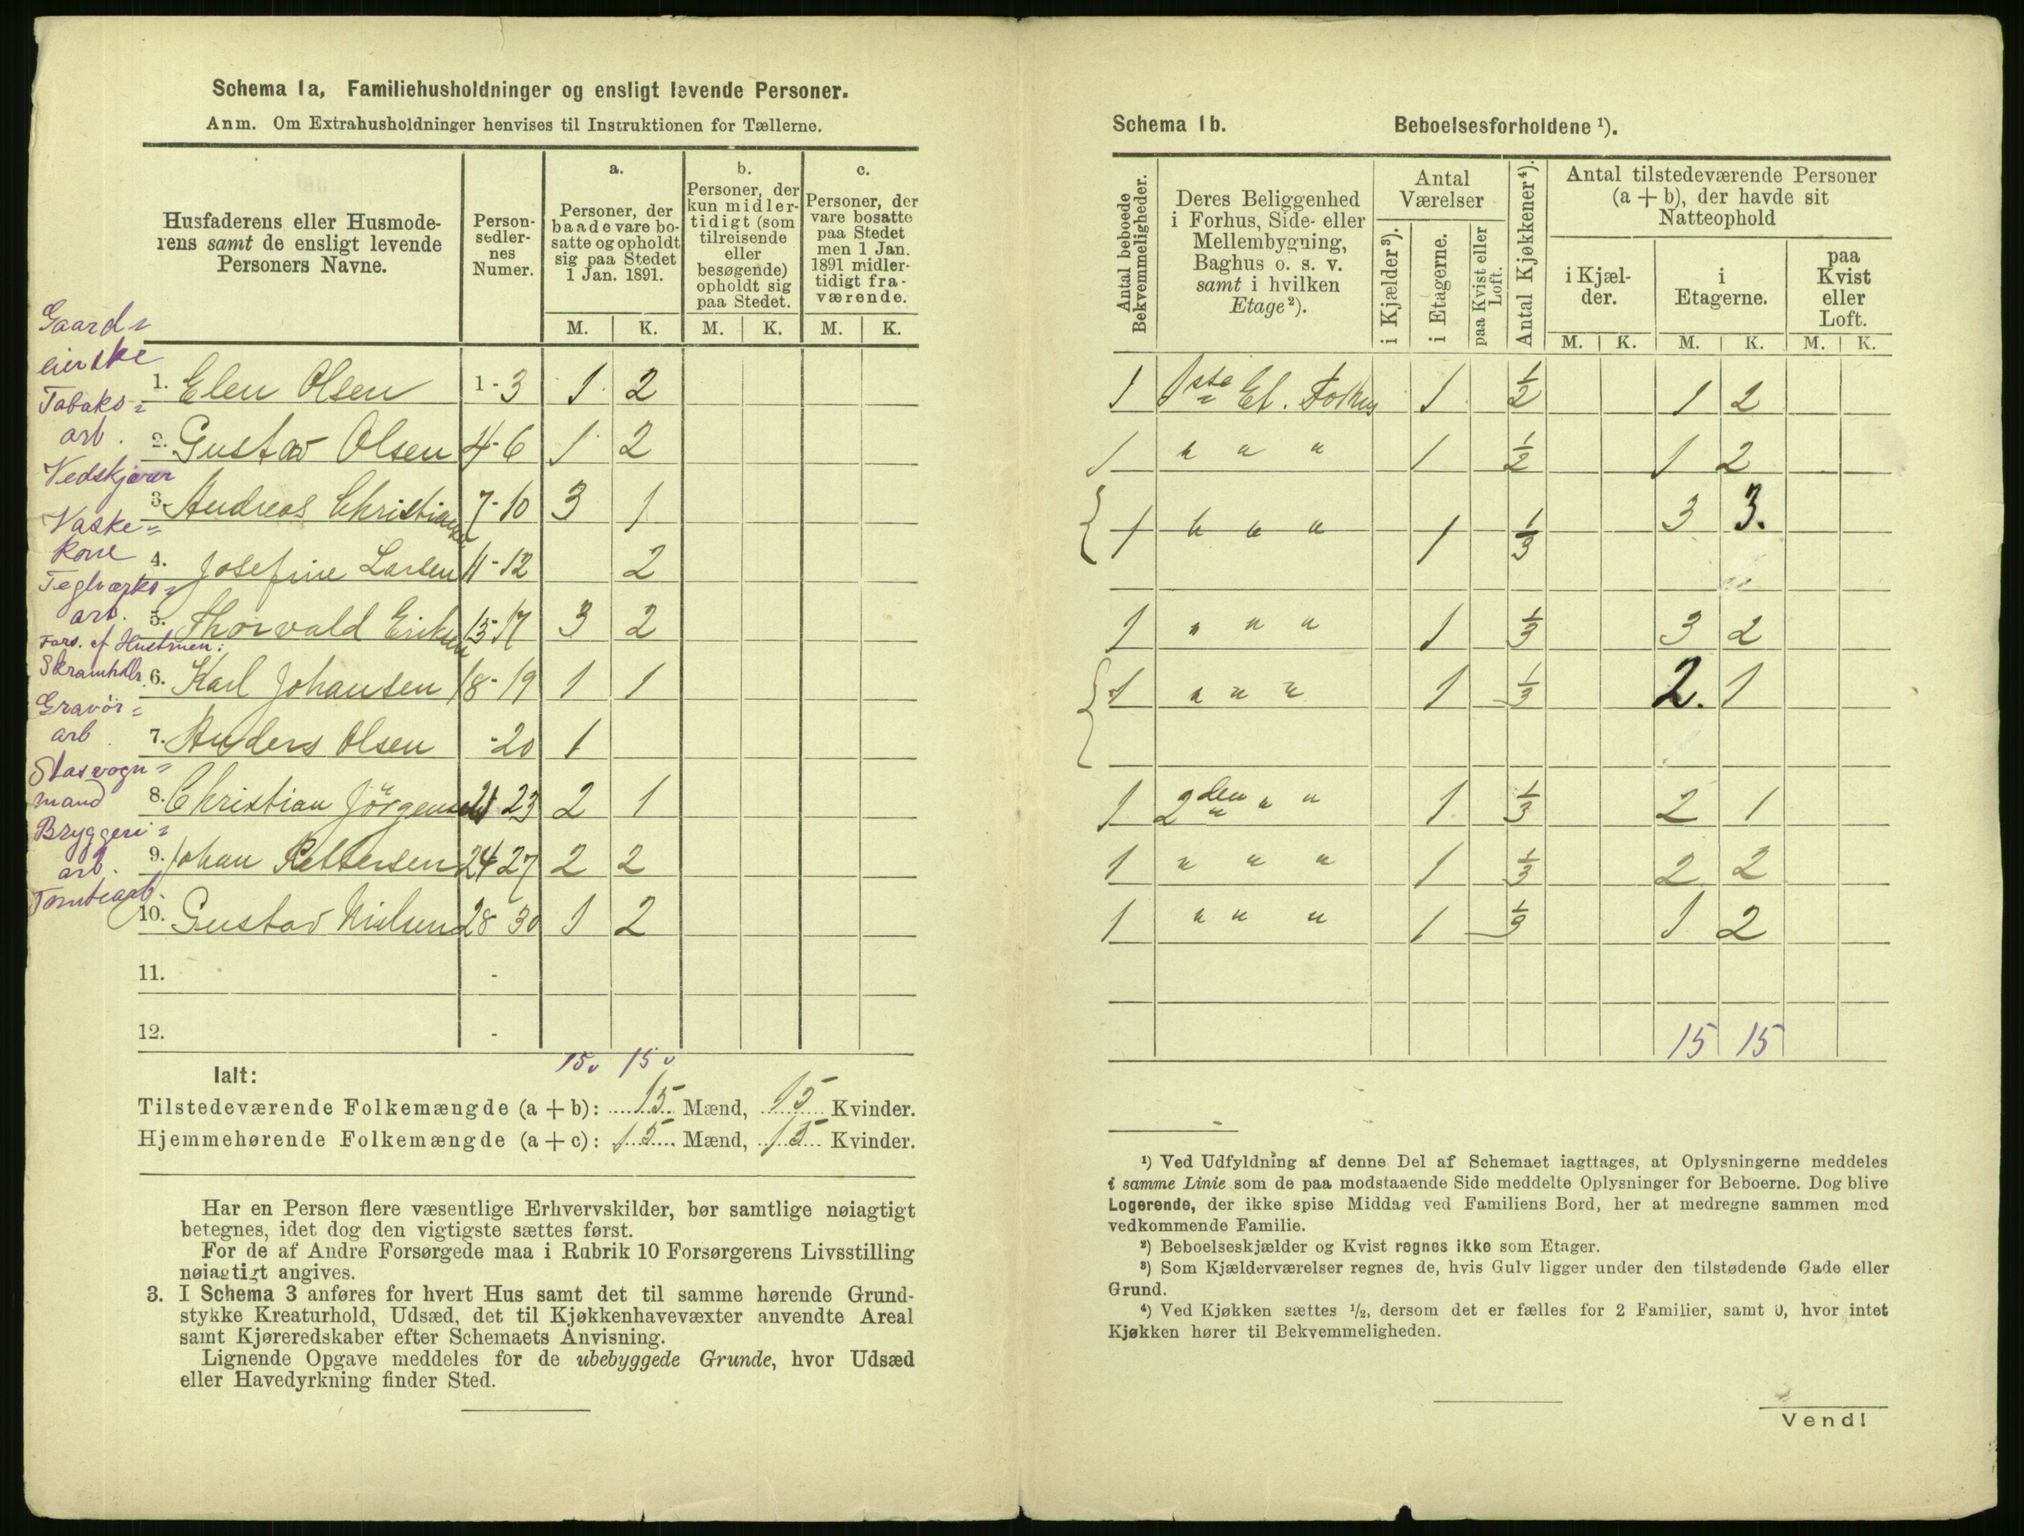 Schema 1a, Familiehusholdninger og ensligt levende Personer.
Anm. Om Extrahusholdninger henvises til Instruktionen for Tællerne.
Husfaderens eller Husmoderens samt de ensligt levende Personers Navne.
Personsedlernes Numer.
a. Personer, der baade vare bosatte og opholdt sig paa Stedet 1 Jan. 1891.
b. Personer, der kun midlertidigt (som tilreisende eller besøgende) opholdt sig paa Stedet.
c. Personer, der vare bosatte paa Stedet men 1 Jan. 1891 midlertidigt fraværende.
M. K. M. K. M. K.
Gaard= eierske 1. Elen Olsen 1-3 1 2
Tabaks= arb. 2. Gustav Olsen 4-6 1 2
Vedskjærer 3. Andreas Christiansen 7-10 3 1
Vaske= kone 4. Josefine Larsen 11-12 2
Teglværks= arb. 5. Thorvald Eriksen 13-17 3 2
Fors. af Hustruen: 6. Karl Johansen 18-19 1 1
Gravør= arb 7. Anders Olsen -20 1
mand 8. Christian Jørgensen 21 23 2 1
Bryggeri= arb. 9. Johan Pettersen 24 27 2 2
Tomtearb. 10. Gustav Nielsen 28 30 1 2
11. -
12. -
15 15
Ialt:
Tilstedeværende Folkemængde (a + b): 15 Mænd, 15 Kvinder.
Hjemmehørende Folkemængde (a + c): 15 Mænd, 15 Kvinder.
Har en Person flere væsentlige Erhvervskilder, bør samtlige nøiagtigt
betegnes, idet dog den vigtigste sættes først.
For de af Andre Forsørgede maa i Rubrik 10 Forsørgerens Livsstilling
nøiagtigt angives.
3. I Schema 3 anføres for hvert Hus samt det til samme hørende Grund-
stykke Kreaturhold, Udsæd, det til Kjøkkenhavevæxter anvendte Areal
samt Kjøreredskaber efter Schemaets Anvisning.
Lignende Opgave meddeles for de ubebyggede Grunde, hvor Udsæd
eller Havedyrkning finder Sted.
Schema 1b. Beboelsesforholdene ¹).
Antal beboede Bekvemmeligheder.
Deres Beliggenhed i Forhus, Side- eller Mellembygning, Baghus o. s. v. samt i hvilken Etage²).
Antal Værelser
i Kjælder³).
i Etagerne.
paa Kvist eller Loft.
Antal Kjøkkener⁴).
Antal tilstedeværende Personer (a + b), der havde sit Natteophold
i Kjælder.
i Etagerne.
paa Kvist eller Loft.
M. K. M. K. M. K.
1 1ste Et. Forhus 1 ½ 1 2
1 " " " 1 ½ 1 2
1 " " " 1 ⅓ 3 3.
1 " " " 1 ⅓ 3 2
1 " " " 1 ⅓ 2. 1
1 2den " " 1 ⅓ 2 1
1 " " " 1 ⅓ 2 2
1 " " " 1 ⅓ 1 2
15 15
¹) Ved Udfyldning af denne Del af Schemaet iagttages, at Oplysningerne meddeles
i samme Linie som de paa modstaaende Side meddelte Oplysninger for Beboerne. Dog blive
Logerende, der ikke spise Middag ved Familiens Bord, her at medregne sammen med
vedkommende Familie.
²) Beboelseskjælder og Kvist regnes ikke som Etager.
³) Som Kjælderværelser regnes de, hvis Gulv ligger under den tilstødende Gade eller
Grund.
⁴) Ved Kjøkken sættes ½, dersom det er fælles for 2 Familier, samt 0, hvor intet
Kjøkken hører til Bekvemmeligheden.
Vend!